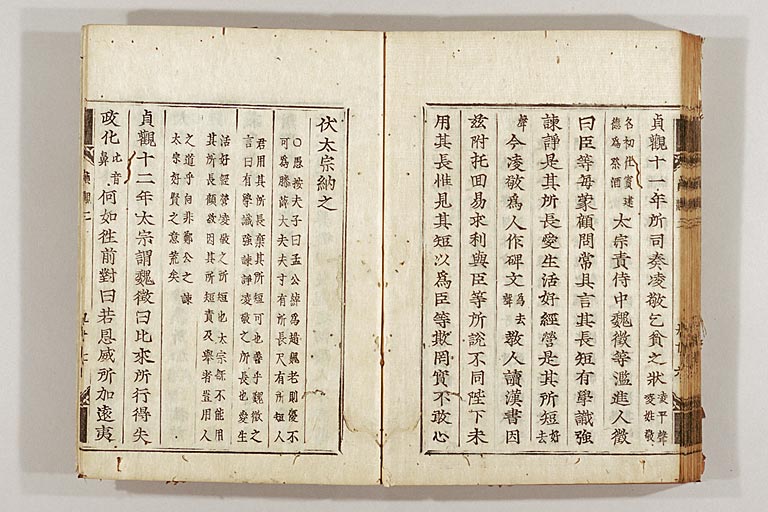 貞觀十一年所司奏凌敬乞貧之狀凌平聲凌姓敬
名初仕竇建德爲祭酒太宗責侍中魏徵等濫進人徵
曰臣等每蒙顧問常具言其長短有學識強
諫諍是其所長愛生活好經營是其所短好去
聲今凌敬爲人作碑文爲去聲敎人讀漢書因
茲附托回易求利與臣等所說不同陛下未
用其長惟見其短以爲臣等欺罔實不敢心
伏太宗納之
○愚按夫子曰孟公綽爲趙魏老則優不
可爲滕薛大夫夫寸有所長尺有所短人
君用其所長棄其所短可也善乎魏徵之
言曰有學識強諫諍凌敬之所長也愛生
活好經營凌敬之所短也太宗旣不能用
其所長顧欲因其所短責及擧者豈用人
之道乎向非鄭公之諫
太宗好賢之意荒矣
貞觀十二年太宗謂魏徵曰比來所行得失
政化比音鼻何如往前對曰若恩威所加遠夷